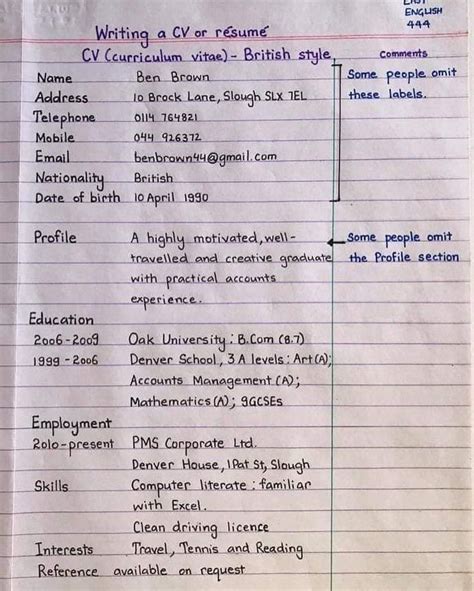 ENGLISH
444
Writing a CV or résumé
CV (curriculum vitae) - British style
Comments
Name Ben Brown
Some people omit
Address 10 Brock Lane, Slough SLX 7EL
these labels.
Telephone 0114 764821
Mobile 044 926372
Email benbrown44@gmail.com
Nationality British
Date of birth 10 April 1990
Profile A highly motivated, well-
Some people omit
travelled and creative graduate
the Profile section
with practical accounts
experience.
Education
2006-2009 Oak University: B.Com (8.7)
1999-2006 Denver School, 3 A levels: Art(A);
Accounts Management (A);
Mathematics (A); 9GCSEs
Employment
2010-present PMS Corporate Ltd.
Denver House, 1 Pat St, Slough
Skills Computer literate: familiar
with Excel.
Clean driving licence
Interests Travel, Tennis and Reading
Reference available on request